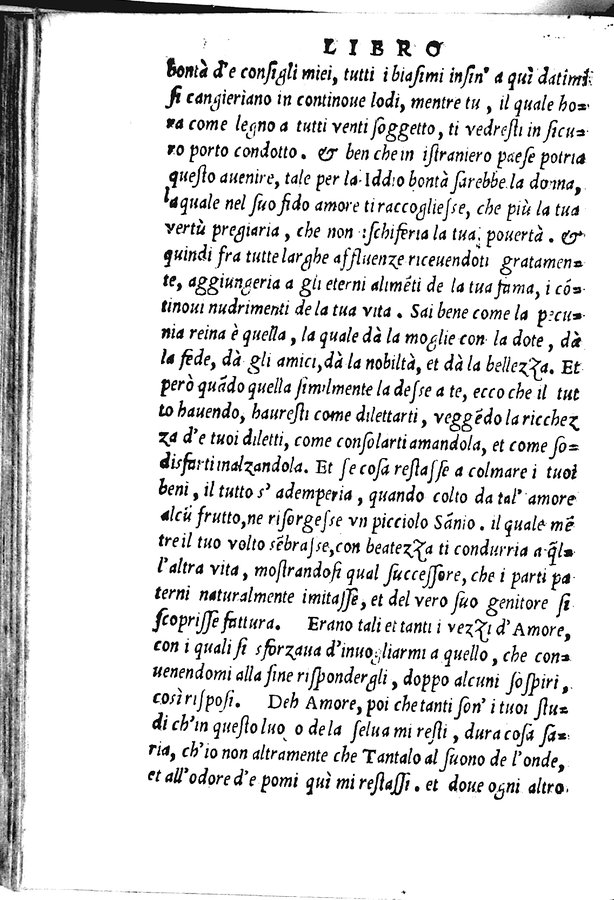 LIBRO
bontà d'e consigli miei, tutti i biasimi insin' a quì datimi
si cangieriano in continoue lodi, mentre tu, il quale ho-
ra come legno a tutti venti soggetto, ti vedresti in sicu-
ro porto condotto. & ben che in istraniero paese potria
questo auenire, tale per la Iddio bontà sarebbe la donna,
laquale nel suo fido amore ti raccogliesse, che più la tua
vertù pregiaria, che non ischiferia la tua pouertà. &
quindi fra tutte larghe affluenze riceuendoti gratamen-
te, aggiungeria a gli eterni alimēti de la tua fama, i cō-
tinoui nudrimenti de la tua vita. Sai bene come la pecu-
nia reina è quella, la quale dà la moglie con la dote, dà
la fede, dà gli amici, dà la nobiltà, et dà la bellezza. Et
però quādo quella similmente la desse a te, ecco che il tut
to hauendo, hauresti come dilettarti, veggēdo la ricchez
za d'e tuoi diletti, come consolarti amandola, et come so-
disfarti inalzandola. Et se cosa restasse a colmare i tuoi
beni, il tutto s' ademperia, quando colto da tal' amore
alcū frutto, ne risorgesse vn picciolo Sānio. il quale mē
tre il tuo volto sēbrasse, con beatezza ti condurria a q̄lla
l'altra vita, mostrandosi qual successore, che i parti pa
terni naturalmente imitasse, et del vero suo genitore si
scoprisse fattura. Erano tali et tanti i vezzi d'Amore,
con i quali si sforzaua d'inuogliarmi a quello, che con-
uenendomi alla fine rispondergli, doppo alcuni sospiri,
così risposi. Deh Amore, poi che tanti son' i tuoi stu-
di ch'in questo luo o de la selua mi resti, dura cosa sa-
ria, ch'io non altramente che Tantalo al suono de l'onde,
et all'odore d'e pomi quì mi restassi. et doue ogni altro